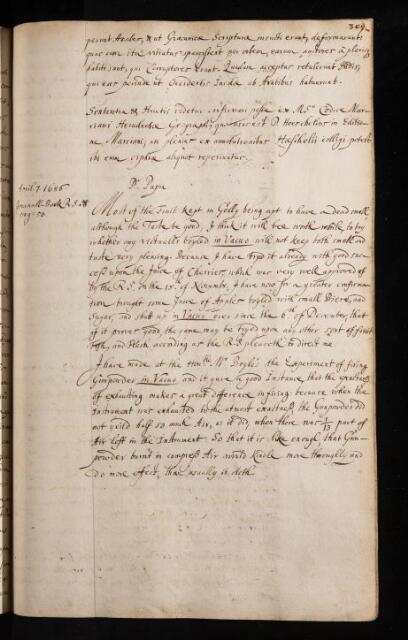 309
permit Arabes, & ut Graecanica Scriptura insueti erant, deformavunt
quas cum ita vitiatas sparsissent per orbem, earum authores a plerisq
habiti sunt, qui Corruptores erant. Quidam acceptas retulerunt Indis,
qui eas perinde ut Occidentis Incolae ab Arabibus habuerunt.
Sententia Huetii videtur confirmari posse ex M.S. Codice Mar-
ciani Heracleotae Geographi, quo usus est D Hoeschelius in Editio-
ne Marciani, in plenius ex annotationibus Hoeschelii colligi potest
ibi enim ciphrae aliquot reperiuntur.
April 7. 1686
Journall Book R.S.
pag. 58.
Dr Papin
Most of the Fruit kept in Gelly being apt to have a dead smell
although the Taste be good, I think it will bee worth while to try
whether any victualls boyled in Vacuo will not keep both smell and
taste very pleasing: because I have tryed it already with good suc-
cess upon the Juice of Cherries, which was very well approved of
by the R.S. on the 18th of November, I have now for a greater confirma-
tion brought some Juice of Apples boyled with small Pieces, and
Sugar, and shutt up in Vacuo ever since the 6th of December, that
if it proves good, the same may be tryed upon any other sort of fruit
Fish, and Flesh, according as the R.S. pleaseth to direct me.
I have made at the Honble Mr Boyle's the Experiment of firing
Gunpowder in Vacuo and it gave a good Instance, that the exactness
of exhausting makes a great difference in firing: because when the
Instrument was exhausted to the utmost exactness, the Gunpowder did
not yeild half so much Air, as it did, when there was 1/13 part of
Air left in the Instrument. So that it is like enough, that Gun-
powder burnt in compress't Air would kindle more throughly and
do more effect, than usually it doth.